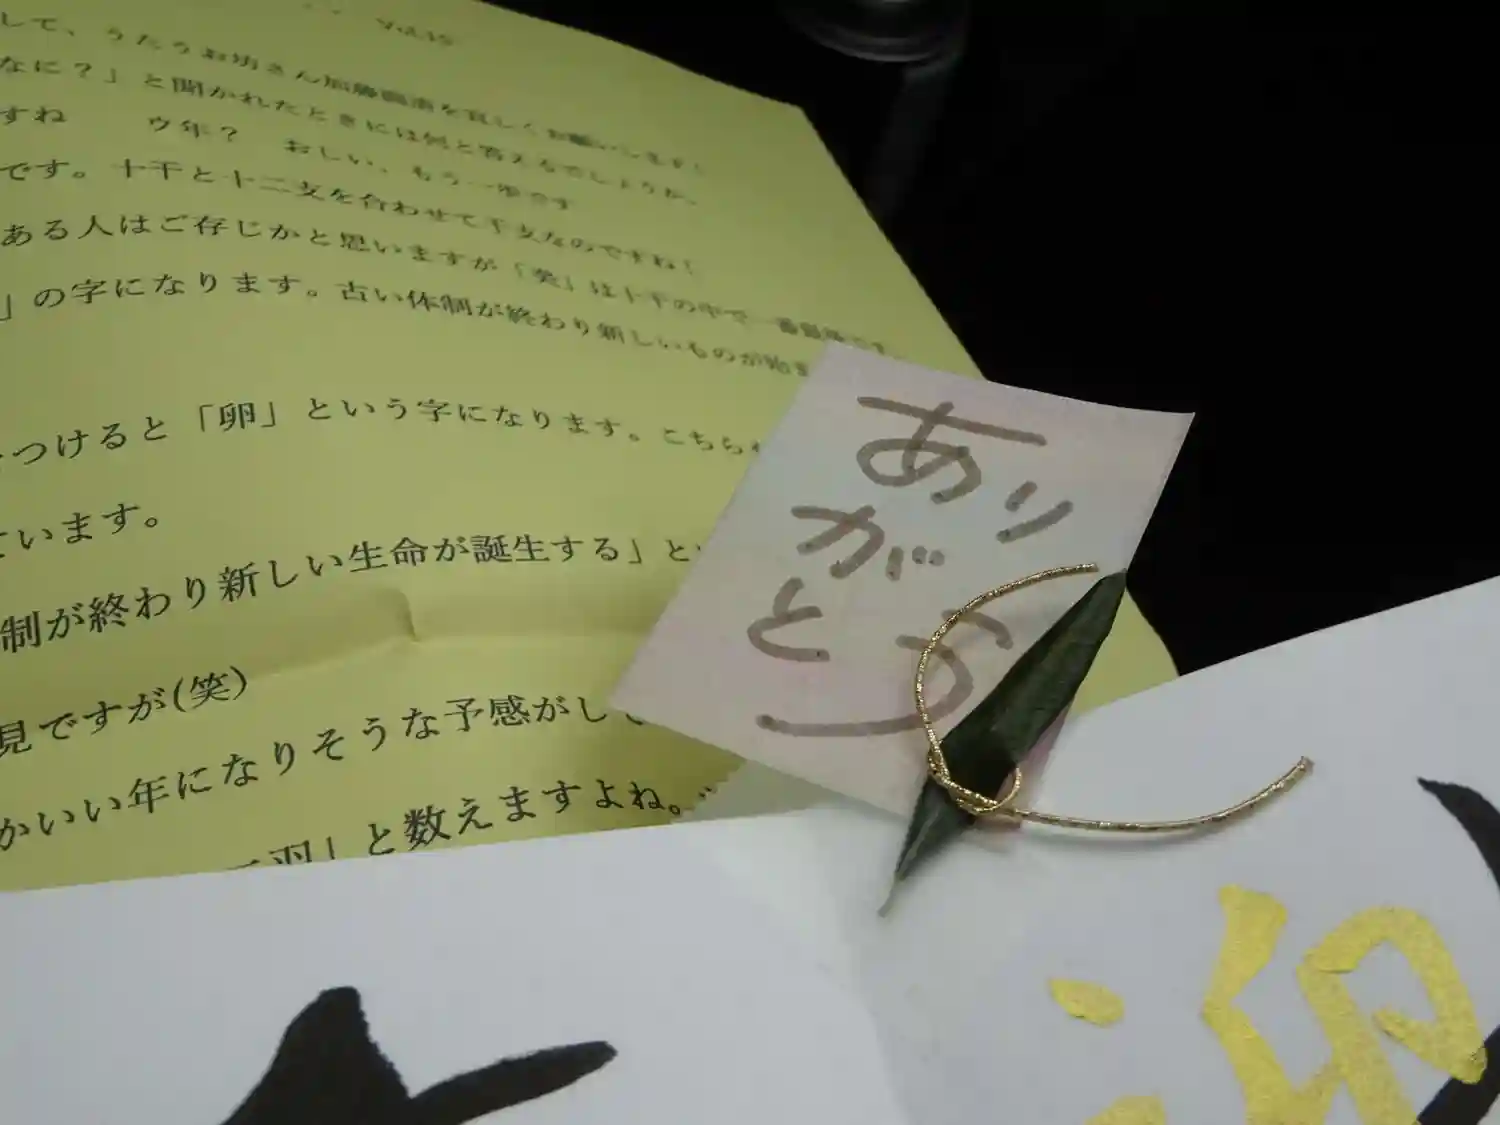 Vol.45
して、うたうお坊さん加藤
なに？」と聞かれたときには何と答えるでしょうか。
すね ウ年？ おしい、もう一歩です
です。十干と十二支を合わせて干支なのですね！
ある人はご存じかと思いますが「癸」は十干の中で一番最後です。
」の字になります。古い体制が終わり新しいものが始ま
つけると「卵」という字になります。こちら
ています。
制が終わり新しい生命が誕生する」と
見ですが(笑)
かいい年になりそうな予感がして
二羽」と数えますよね。
ありがとう